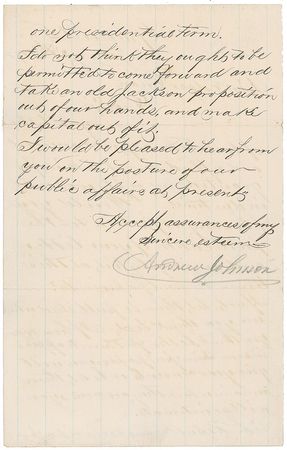 one presidential term.
I do not think they ought to be
permitted to come forward and
take an old Jackson proposition
out of our hands, and make
capital out of it.
I would be pleased to hear from
you on the posture of our
public affairs at present.
Accept assurances of my
sincere esteem
Andrew Johnson